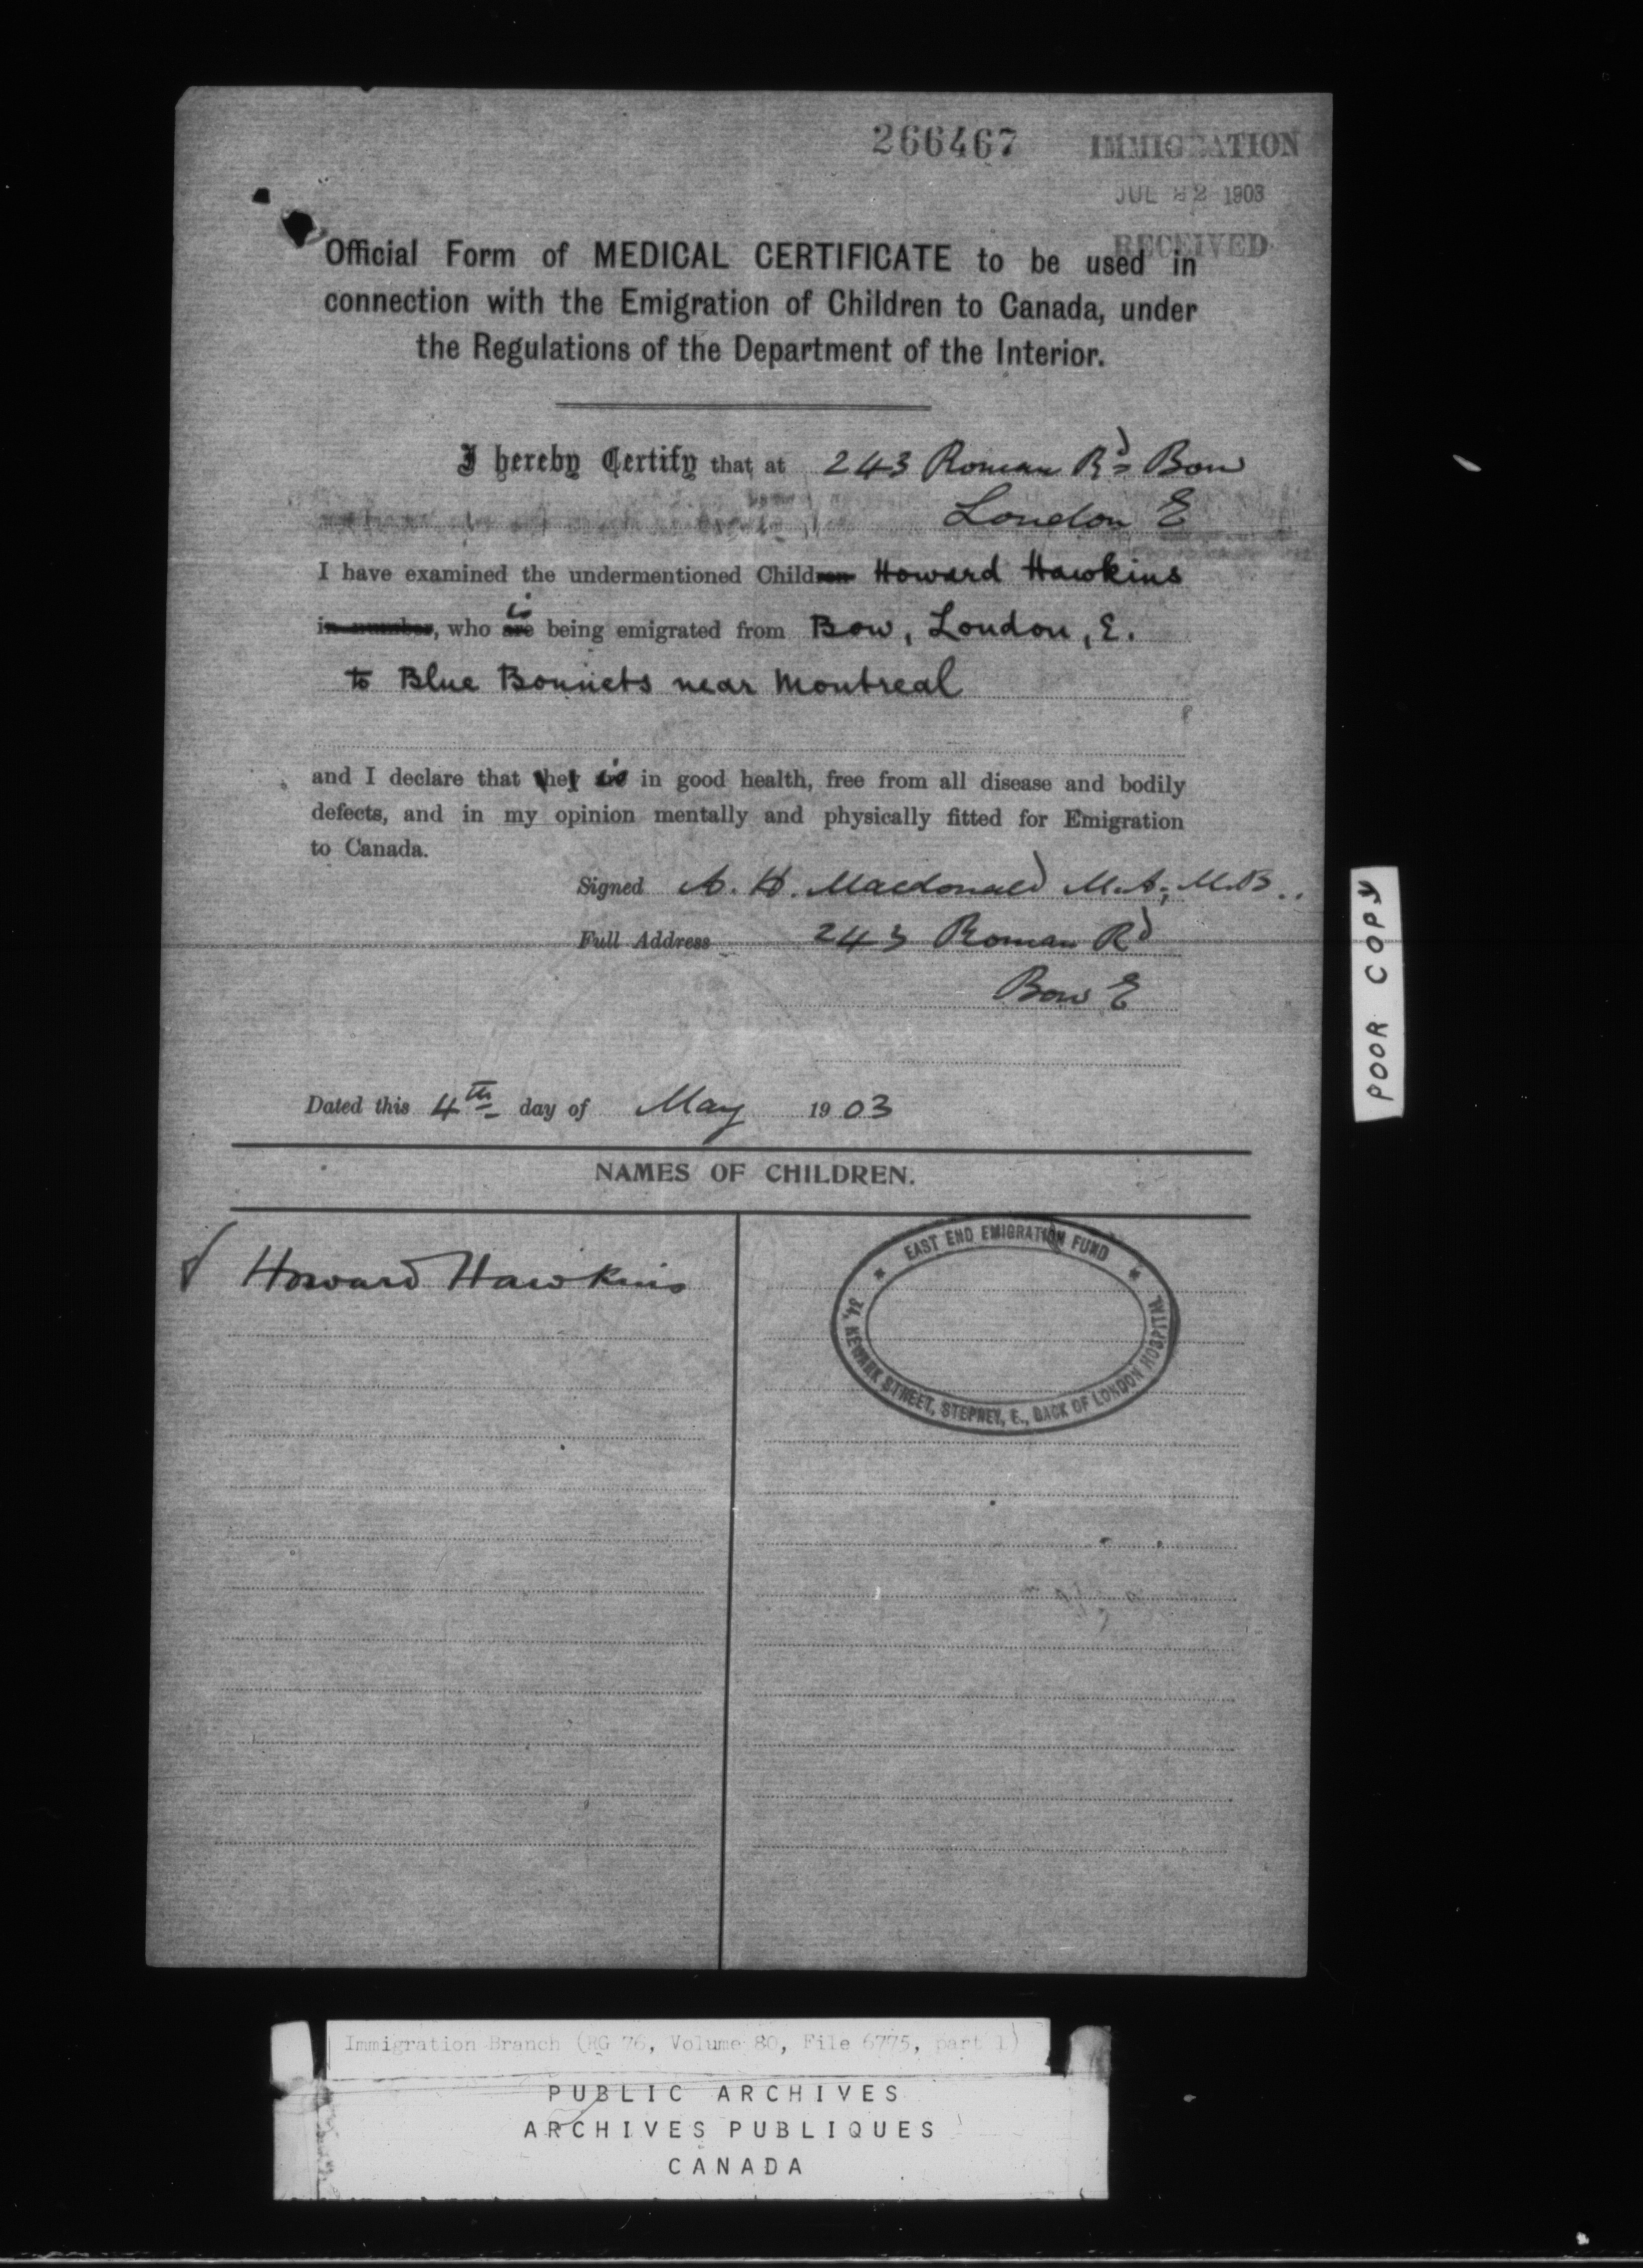 266467
IMMIGRATION
JUL 22 1903
RECEIVED
Official Form of MEDICAL CERTIFICATE to be used in
connection with the Emigration of Children to Canada, under
the Regulations of the Department of the Interior.
I hereby Certify that at 243 Roman Rd Bow
London E
I have examined the undermentioned Children Howard Hawkins
in number, who are is being emigrated from Bow, London, E.
to Blue Bonnets near Montreal
and I declare that they is in good health, free from all disease and bodily
defects, and in my opinion mentally and physically fitted for Emigration
to Canada.
Signed A. H. Macdonald M.A., M.B..
Full Address 243 Roman Rd
Bow E
Dated this 4th day of May 1903
NAMES OF CHILDREN.
Howard Hawkins
EAST END EMIGRATION FUND
34, NEWARK STREET, STEPNEY, E., BACK OF LONDON HOSPITAL
POOR COPY
Immigration Branch (RG 76, Volume 80, File 6775, part 1)
PUBLIC ARCHIVES
ARCHIVES PUBLIQUES
CANADA